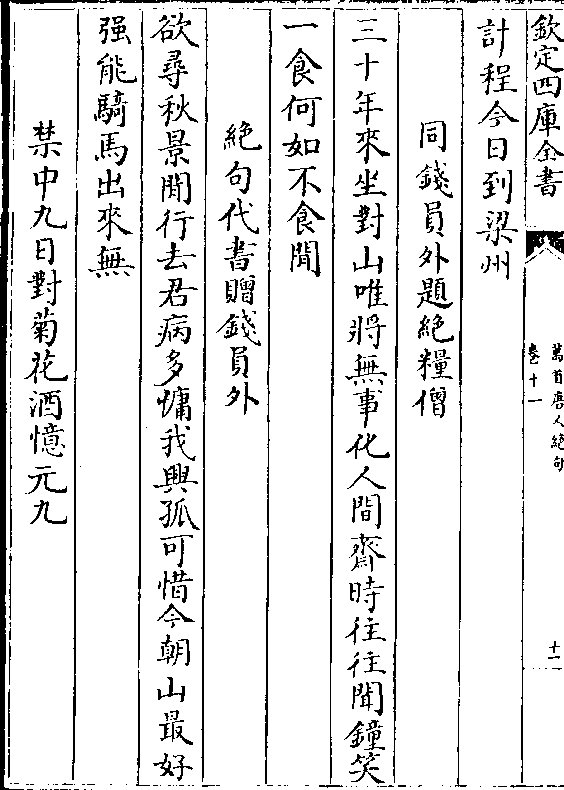 欽定四庫全書
萬首唐人絕句
卷十一
十一
計程今日到梁州
同錢員外題絕糧僧
三十年來坐對山唯將無事化人間齋時往往聞鐘笑
一食何如不食閒
絕句代書贈錢員外
欲尋秋景閒行去君病多慵我興孤可惜今朝山最好
强能騎馬出來無
禁中九日對菊花酒憶元九